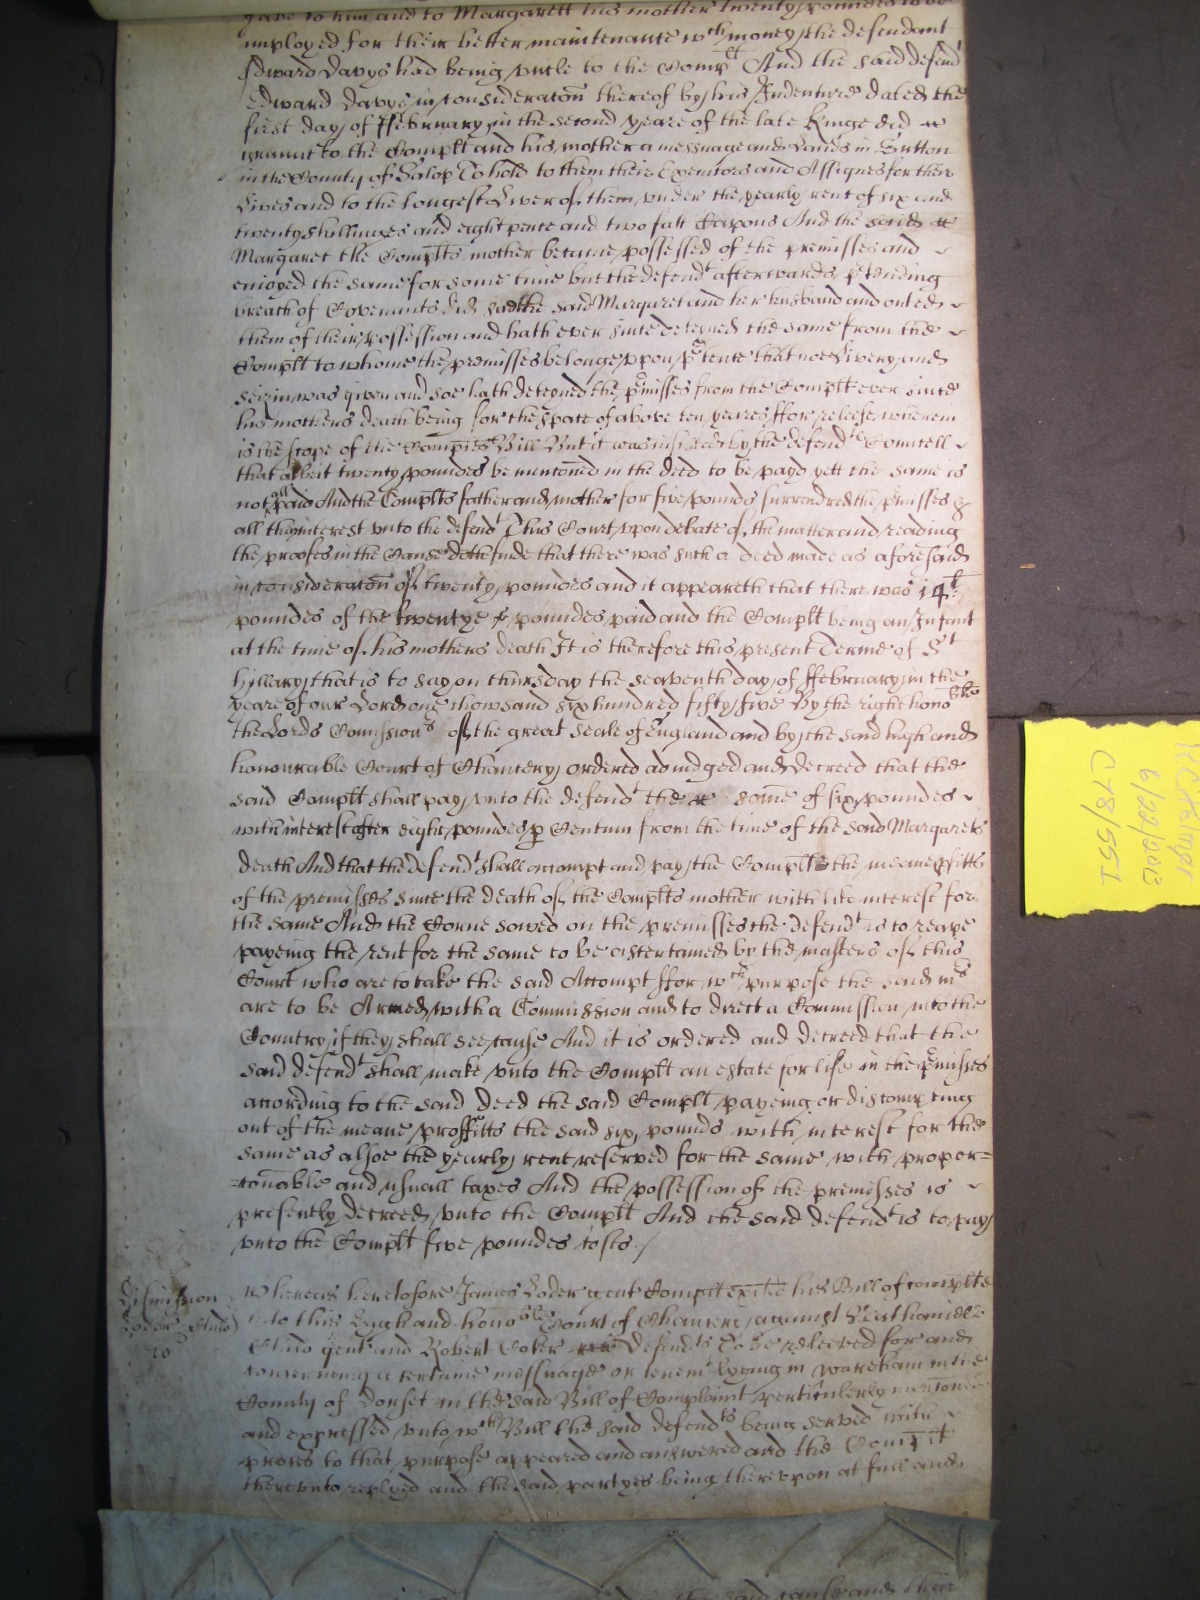 gave to him and to Margarett his mother twenty pounds to be
imployed for their better maintenance wth money the defendant
Edward Davys had being unckle to the Complt And the said defendt
Edward Davys in consideracon thereof by his Indenture dated the
first day of ffebruary in the second yeare of the late Kinge did
graunt to the Complt and his mother a messuage and Lands in Sutton
in the County of Salop To hold to them their Executors and Assignes for their
Lives and to the longest Liver of them under the yearly rent of six and
twenty shillinges and eight pence and two fatt Capons And the said
Margaret the Complts mother became possessed of the premisses and
enioyed the same for some time but the defendt afterwards ptending
breach of Covenants did the said Margaret and her husband and outed
them of their possession and hath ever since deteyned the same from the
Complt to whome the premisses belonge upon ptence that noe Livery and
seizin was given and soe hath deteyned the pmisses from the Complt ever since
his mothers death being for the space of above ten yeares ffor releefe wherein
is the scope of the Complts Bill But it was insisted by the defendts Councell
that albeit twenty pounds be mentoned in the deed to be payd yett the same is
not all paid And the Complts father and mother for five pounds surrendred the pmisses &
all theyr interest unto the defendt This Court upon debate of the matter and reading
the proofes in the Cause doth finde that there was such a deed made as aforesaid
in consideracon of twenty poundes and it appeareth that there was 14
poundes of the twentye poundes paid and the Complt being an Infant
at the time of his mothers death It is therefore this present Terme of St
Hillary that is to say on thursday the seaventh day of ffebruary in the
yeare of our Lord one thowsand six hundred fifty five By the right honoble
the Lords Comissionrs of the great Seale of England and by the said high and
honourable Court of Chancery ordered adiudged and decreed that the
said Complt shall pay unto the defendt the some of six poundes
with interest after eight poundes p Centum from the time of the said Margarets
death And that the defendt shall accompt and pay the Complt the meane pfitts
of the premisses since the death of the Complts mother with like interest for
the same And the Corne sowed on the premisses the defendt is to reape
payeing the rent for the same to be ascertained by the masters of this
Court who are to take the said Accompt ffor wch purpose the said mrs
are to be Armed with a Commission and to direct a Commission into the
Country if they shall see cause And it is ordered and decreed that the
said defendt shall make unto the Complt an estate for life in the pmisses
according to the said deed the said Complt payeing or discompting
out of the meane proffitts the said six pounds with interest for the
same as alsoe the yearly rent reserved for the same with propor=
=conable and usuall taxes And the possession of the premisses is
presently decreed unto the Complt And the said defendt is to pay
unto the Complt five poundes costs /
Whereas heretofore James Loder gent Complt exhited his Bill of complte
into this high and honoble Court of Chancery against Nathaniell
gent and Robert Coker defendts To be releeved for and
concerneing a certaine messuage or tenemt lyeing in Wareham in the
County of Dorset in the said Bill of Complaint perticulerly mentoned
and expressed unto wch Bill the said defendts being served with
proces to that purpose appeared and answered and the Complt
thereunto replyed and the said partyes being thereupon at full and
Dismission
Loder
6/22/2013
C78/551